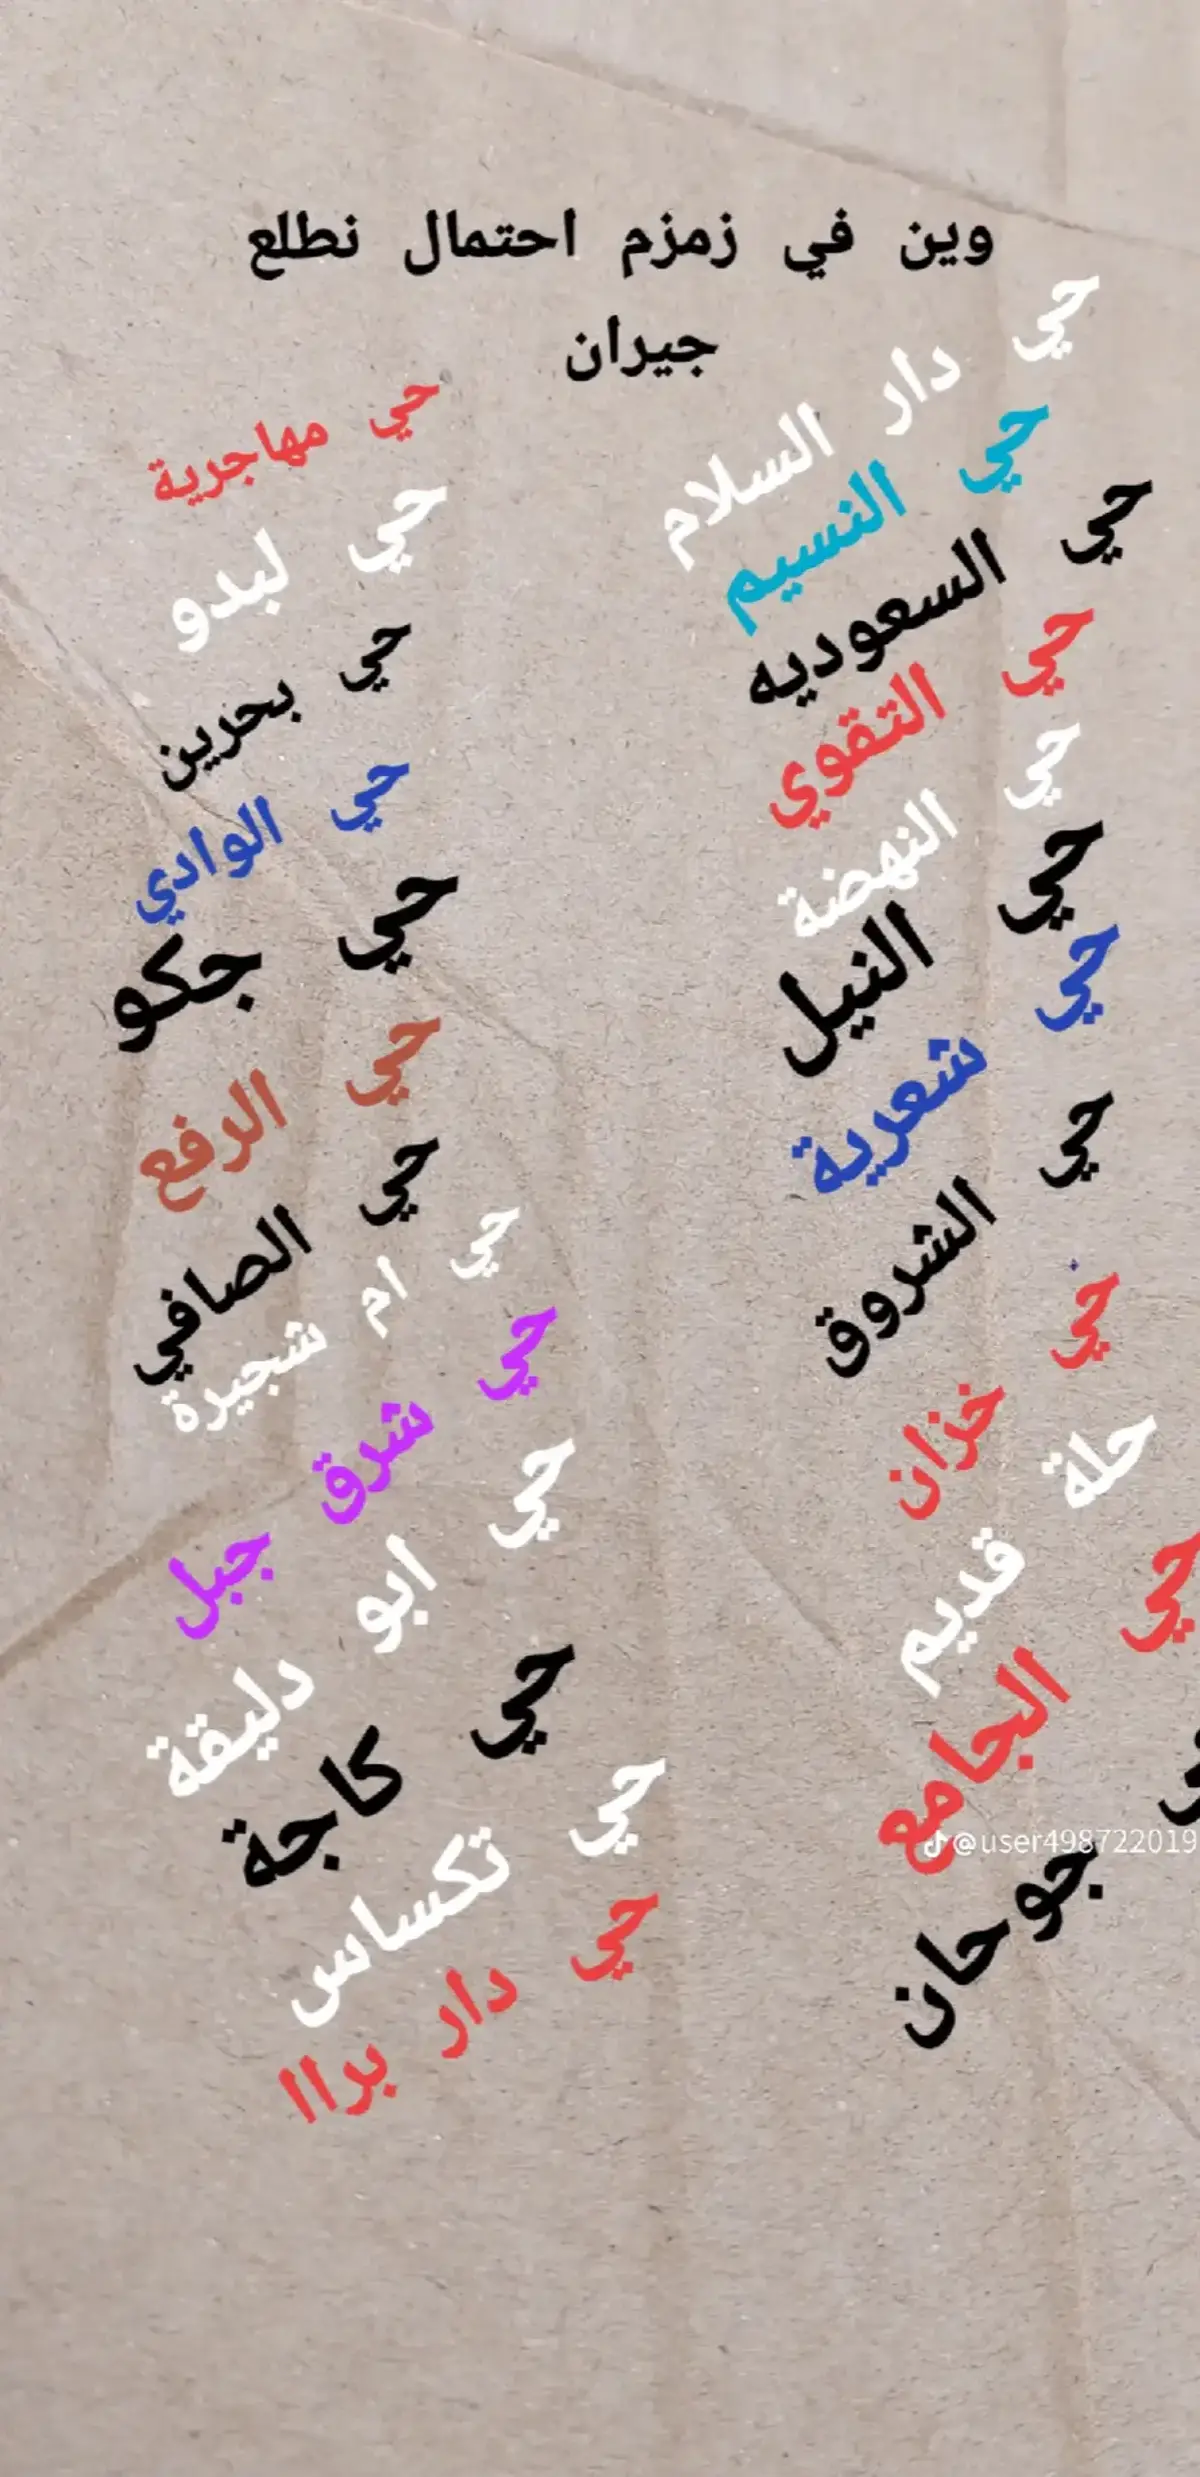 وين في زمزم احتمال نطلع
جيران
حي دار السلام
حي النسيم
حي السعوديه
حي التقوي
حي النهضة
حي النيل
حي شعرية
حي الشروق
حي خزان
حلة قديم
حي الجامع
جوحان
حي مهاجرية
حي لبدو
حي بحرين
حي الوادي
حي جكو
حي الرفع
حي الصافي
حي ام شجيرة
حي شرق جبل
حي ابو دليقة
حي كاجة
حي تكساس
حي دار براا
@user498722019